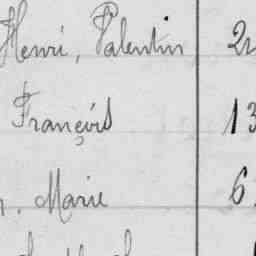 Henri, Valentin 2
François 13
Marie 6